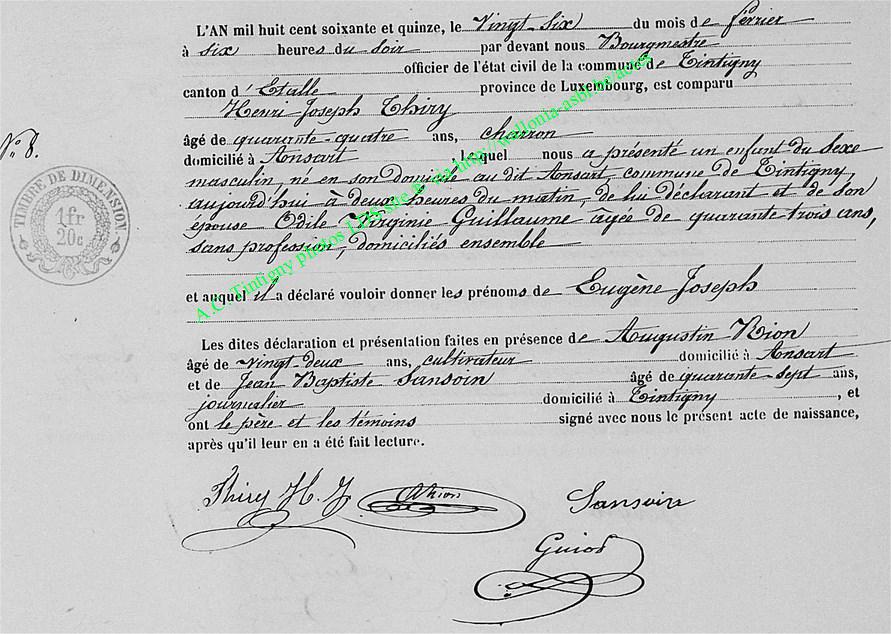 L'AN mil huit cent soixante et quinze, le Vingt-six du mois de février
à six heures du soir par devant nous Bourgmestre
officier de l'état civil de la commune de Tintigny
canton d'Etalle province de Luxembourg, est comparu
Henri Joseph Thiry
âgé de quarante-quatre ans, charron
N° 8.
domicilié à Ansart lequel nous a présenté un enfant du sexe
masculin, né en son domicile au dit Ansart, commune de Tintigny,
aujourd'hui à deux heures du matin, de lui déclarant et de son
épouse Odile Virginie Guillaume agée de quarante trois ans,
sans profession, domiciliés ensemble
TIMBRE DE DIMENSION
1fr
20c
et auquel il a déclaré vouloir donner les prénoms de Eugène Joseph
Les dites déclaration et présentation faites en présence de Augustin Rion
âgé de vingt-deux ans, cultivateur domicilié à Ansart
et de Jean Baptiste Sansoin âgé de quarante-sept ans,
journalier domicilié à Tintigny, et
ont le père et les témoins signé avec nous le présent acte de naissance,
après qu'il leur en a été fait lecture.
Thiry H. J. ARion Sansoin
Guiot
A.C. Tintigny photos LDS site © via http://wallonia-asbl.be/actes